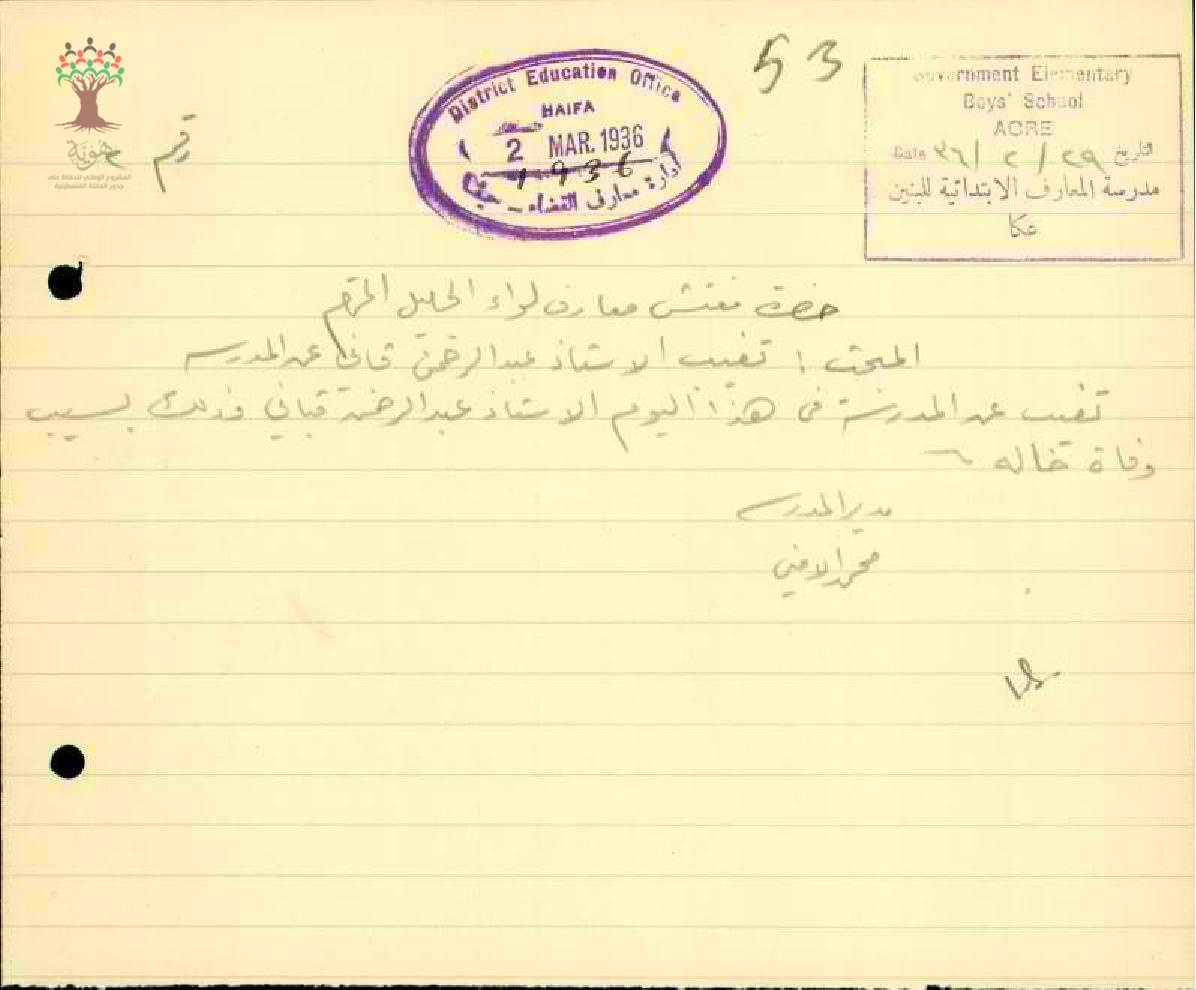 53
District Education Office
HAIFA
2 MAR. 1936
1936
ادارة معارف القضاء - حيفا
Government Elementary
Boys' School
ACRE
Date ٣٦/ ٢ / ٢٩ تاريخ
مدرسة المعارف الابتدائية للبنين
عكا
هوية
المشروع الوطني للحفاظ على
جذور العائلة الفلسطينية
رقم
حضرة مفتش معارف لواء الجليل المحترم
المبحث : تغيب الاستاذ عبدالرحمن قباني عن المدرسه
تغيب عن المدرسة في هذا اليوم الاستاذ عبدالرحمن قباني وذلك بسبب
وفاة خاله
مدير المدرسه